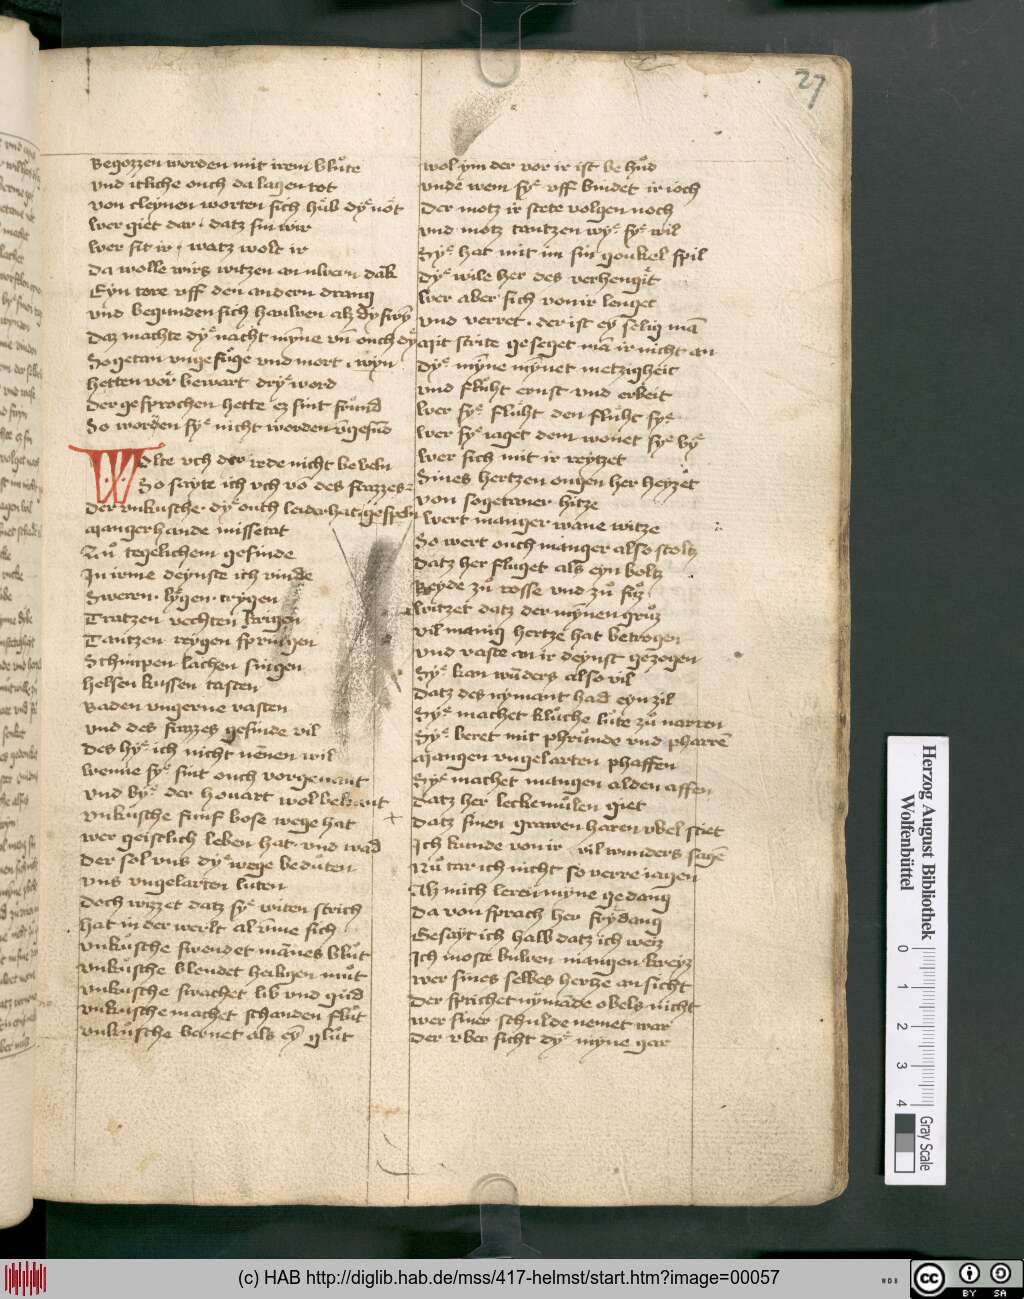 27
Begozzen worden mit irem blůte
vnd itliche ouch da lagen tot
von cleynen worten sich hůb dyͤ nöt
Wer giet dar · datz sin wir
Wer sit ir · watz wolt ir
Da wolle wirs witzen an ulvern dāk
Eyn tore vff den andern drang
vnd begunden sich hauwen alz dy swȳ
Daz machte dyͤ nacht myne vn̄ ouch dyͤ
So getan vngefůge vnd mort · wyn
Hetten vor bewart dryͤ word
Der gesprochen hette ez sint frůnd
So worden syͤ nicht worden v̄gesūd
Wolte vch der rede nicht beveln
So seyte ich vch vō des frazzes
Der vnkusche · dyͤ ouch leider hat gespeln
Mangerhande missetat
Nů tegelichem gesinde
In irme deynste ich vinde
Swern · lygen · trygen
Tratzen vechten krigen
Tantzen reygen springen
Schimpen lachen singen
Helsen kussen tasten
Baden vngerne vasten
vnd des frazzes gesinde vil
Des hyͤ ich nicht nēnen wil
Wenne syͤ sint ouch vorgenant
vnd byͤ der hovart wol bekant
vnkůsche fumf bose wege hat
Wer geistlich leben hat · vnd wad
Der sol vns dyͤ wege bedůten
vns vngelarten luten
Doch wizzet datz syͤ witen strich
Hat in der werlt al v̄me sich
vnkůsche swendet mānes blůt
vnkůsche blendet heiligen můt
vnkůsche swachet lib vnd gůd
vnkůsche machet schanden flůt
vnkůsche bernet als eȳ glůt
Wol ym der vor ir ist be hůd
vnde wem syͤ vff bindet ir ioch
Der motz ir stete volgen noch
vnd motz tantzen wyͤ syͤ wil
Syͤ hat mit im sin goukel spil
Dyͤ wile her des verhengit
Wer aber sich von ir lenget
vnd verret · der ist eȳ selig mā
Mit strite geseget mā ir nicht an
Dyͤ myne mȳnet metzigheit
vnd flůht ernst vnd erbeit
Wer syͤ flůht den flůht syͤ
Wer syͤ iaget dem wonet syͤ byͤ
Wer sich mit ir reytzet
Sines hertzen ougen her heyzet
von sogetaner hitze
Wert manger wane witze
So wert ouch manger also stoltz
Datz her fluget als eyn boltz
Beyde zů rosse vnd zů fůz
Witzet datz der mynen grůz
vil manig hertze hat betrogen
vnd vaste an ir deynst gezogen
Syͤ kan wūders also vil
Datz des nymant had eyn zil
Syͤ machet klůche lůte zů narren
Syͤ beret mit phrůnde vnd pharrē
Mangen vngelarten phaffen
Syͤ machet mangen alden affen
Datz her leckemůlen giet
Datz sinen grawen haren vbel stiet
Ich kunde von ir vil wunders sagē
Nů tar ich nicht so verre iagen
Alz mich leren myne gedang
Da von sprach her frydang
Gesayt ich halb datz ich weiz
Ich moste buwen mangen kreyz
Wer sines selbes hertze an sicht
Der sprichet nymāde obels nicht
Wer siner schulde nemet war
Der vber sicht dyͤ myne gar
Herzog August Bibliothek
Wolfenbüttel
0 1 2 3 4
Gray Scale
(c) HAB http://diglib.hab.de/mss/417-helmst/start.htm?image=00057
WDB
cc BY SA